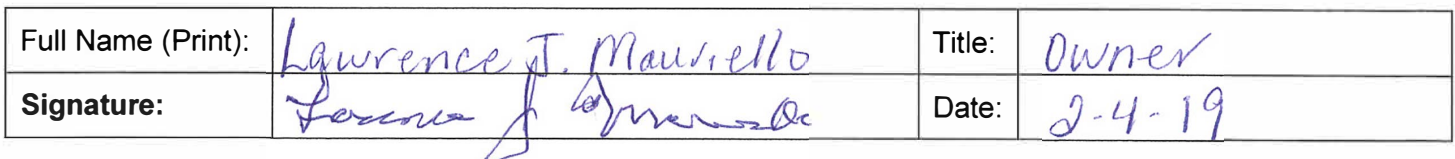 Full Name (Print): Lawrence J. Mauriello Title: Owner
Signature: Date: 2-4-19